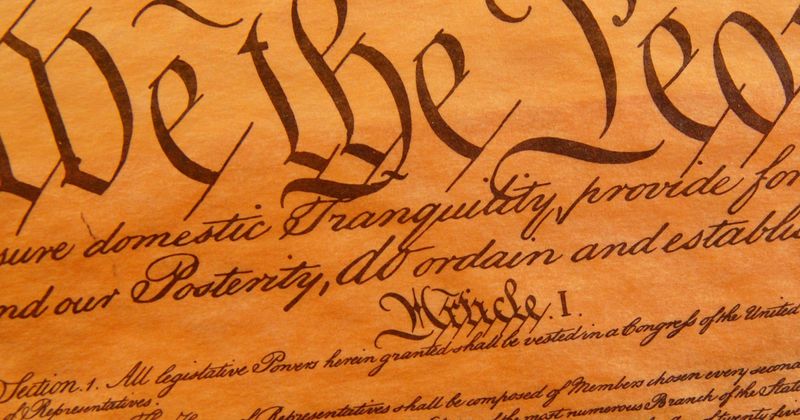 We the Peo
sure domestic Tranquility, provide for
nd our Posterity, do ordain and establis
Article. I.
Section. 1. All legislative Powers herein granted shall be vested in a Congress of the United
of Representatives.
of Representatives shall be composed of Members chosen every second
the most numerous Branch of the State
twenty five